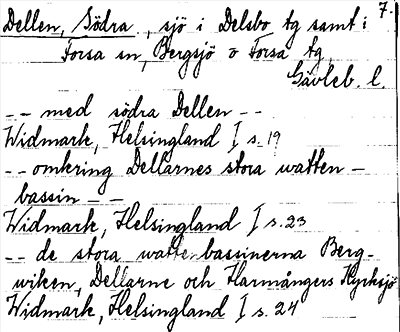 7.
Dellen, Södra, sjö i Delsbo tg samt i
Forsa sn, Bergsjö o Forsa tg
Gävleb. l.
-- med södra Dellen --
Widmark, Helsingland I s. 19
-- omkring Dellarnes stora watten-
bassin --
Widmark, Helsingland I s. 23
-- de stora wattenbassinerna Berg-
wiken, Dellarne och Harmångers Kyrksjö
Widmark, Helsingland I s. 24